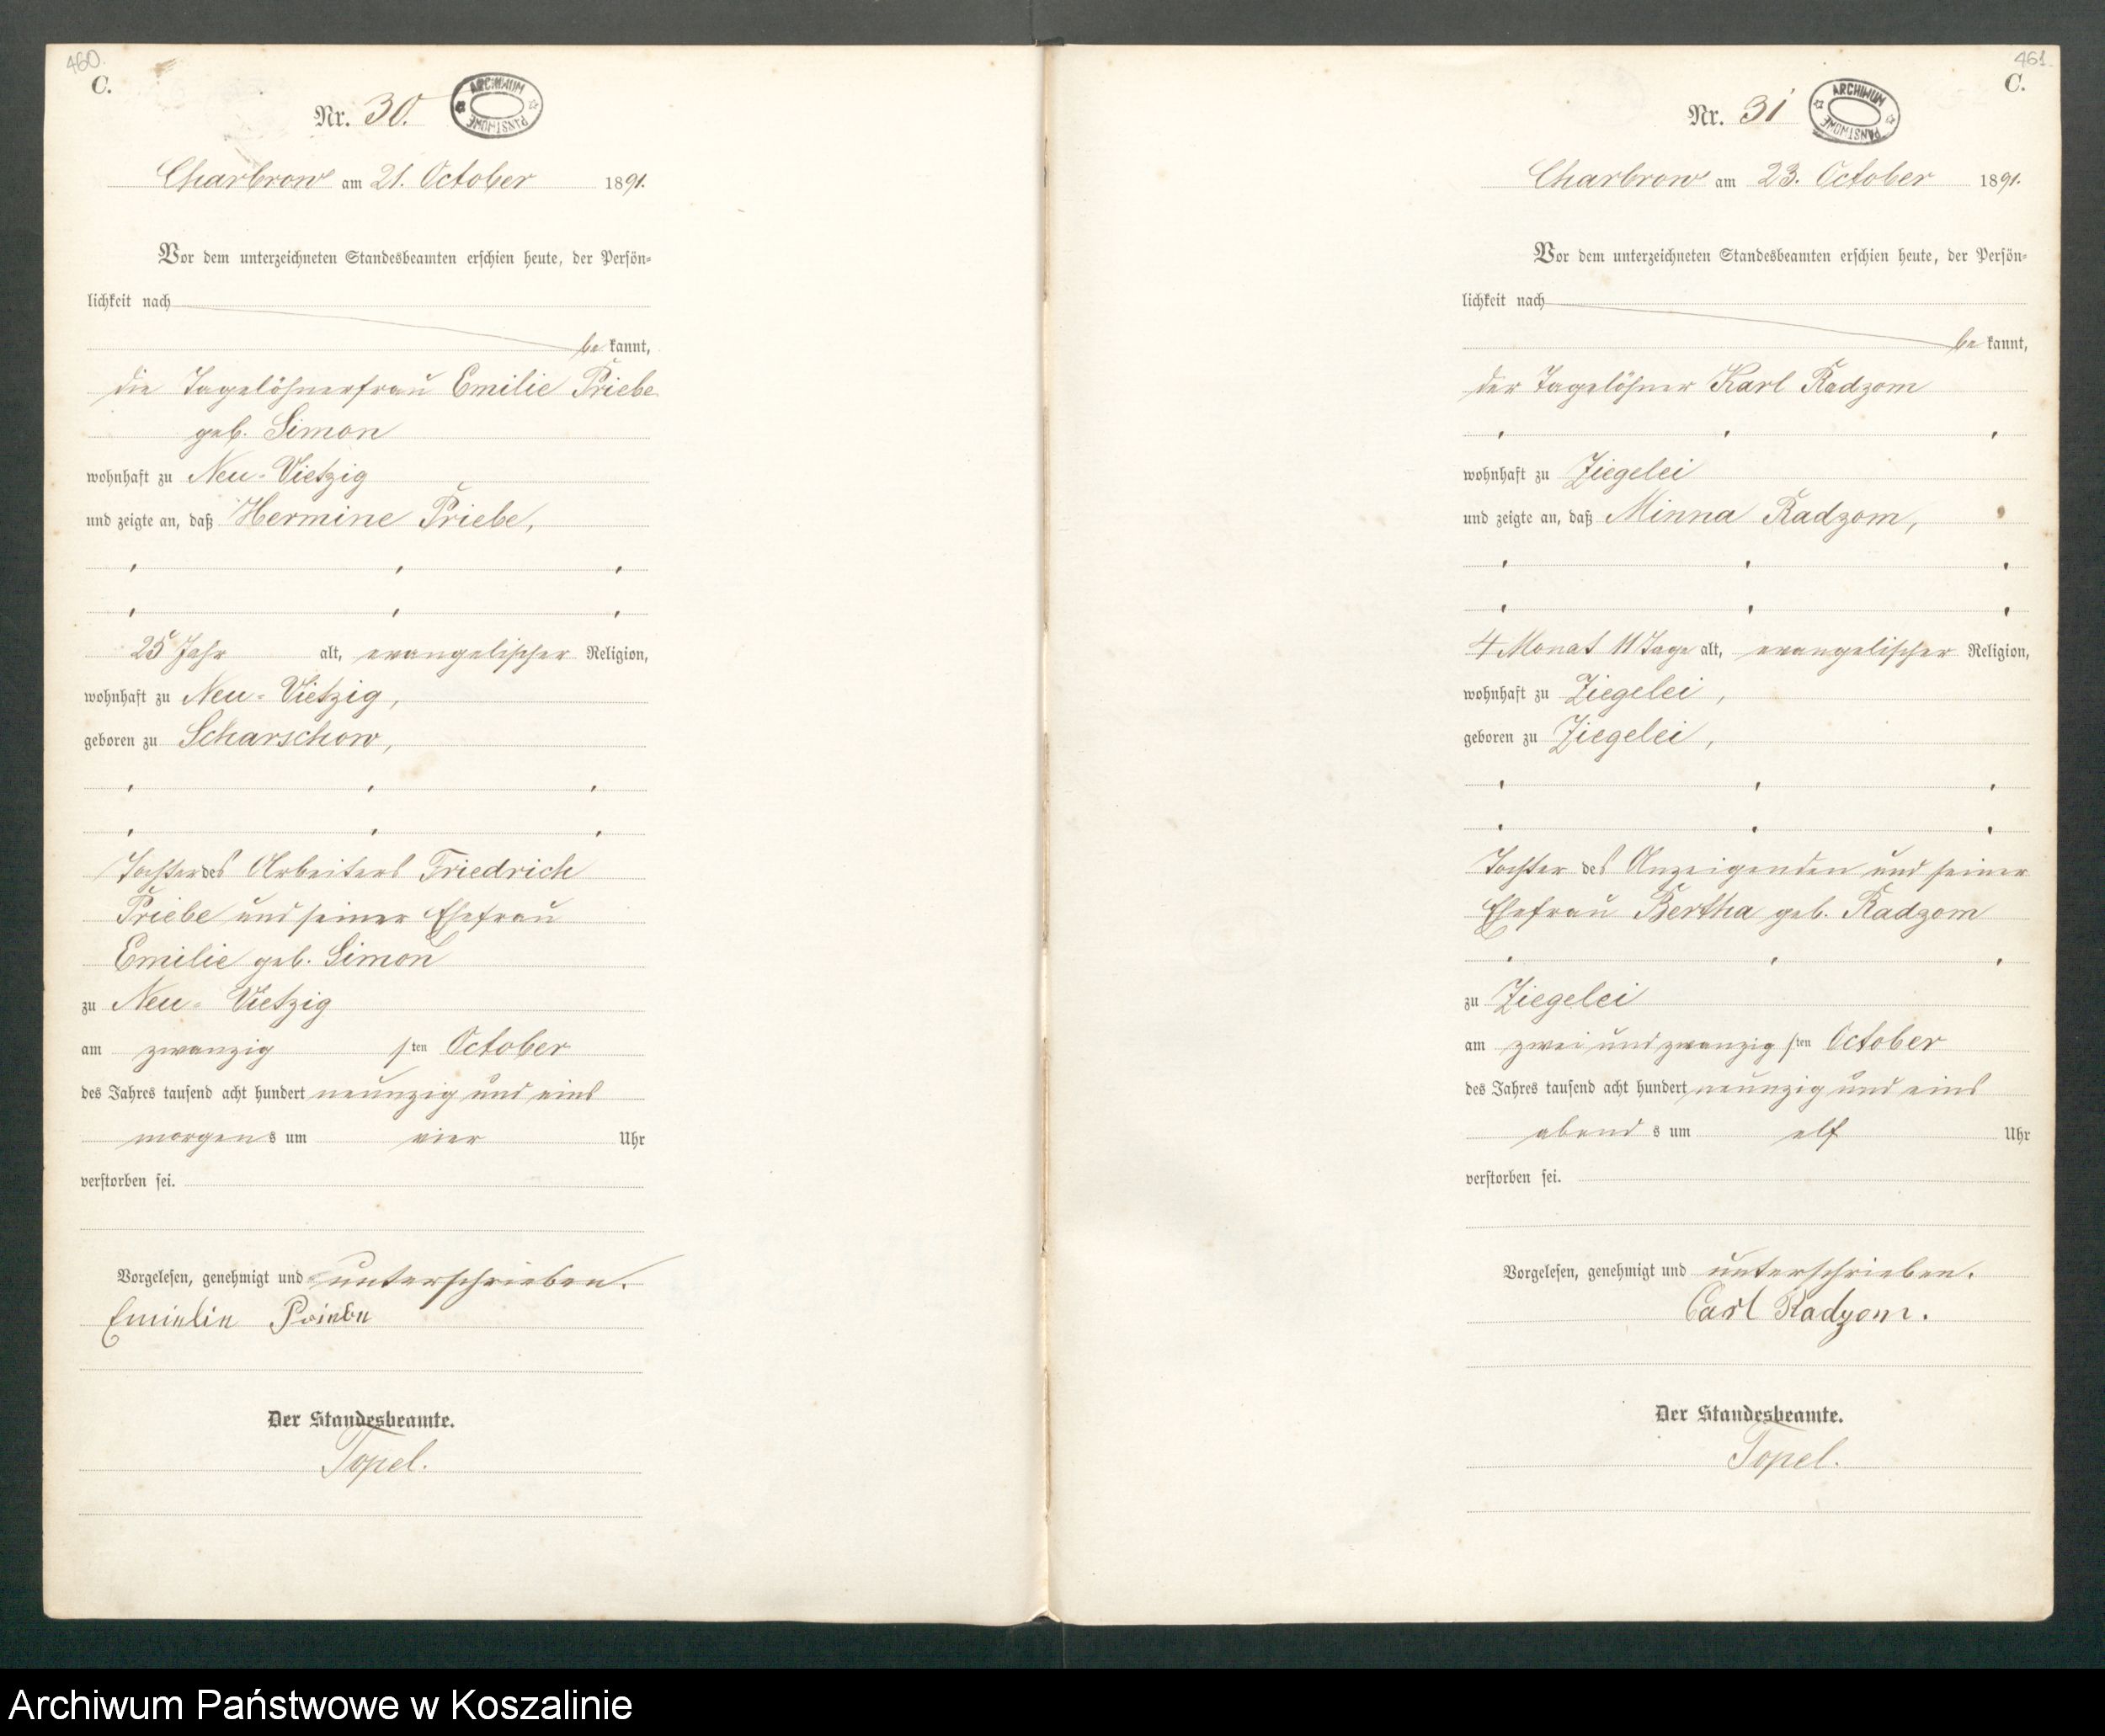 460.
C.
Nr. 30.
ARCHIWUM PAŃSTWOWE
Charbrow am 21. October 1891.
Vor dem unterzeichneten Standesbeamten erschien heute, der Persön=
lichkeit nach
be kannt,
die Tagelöhnerfrau Emilie Priebe
geb. Simon
wohnhaft zu Neu-Vietzig
und zeigte an, daß Hermine Priebe,
25 Jahr alt, evangelischer Religion,
wohnhaft zu Neu-Vietzig,
geboren zu Scharschow,
Tochter des Arbeiters Friedrich
Priebe und seiner Ehefrau
Emilie geb. Simon
zu Neu-Vietzig
am zwanzig sten October
des Jahres tausend acht hundert neunzig und eins
morgens um vier Uhr
verstorben sei.
Vorgelesen, genehmigt und unterschrieben.
Emielie Priebe
Der Standesbeamte.
Topel.
461.
C.
Nr. 31
ARCHIWUM PAŃSTWOWE
Charbrow am 23. October 1891.
Vor dem unterzeichneten Standesbeamten erschien heute, der Persön=
lichkeit nach
be kannt,
der Tagelöhner Karl Radzom
wohnhaft zu Ziegelei
und zeigte an, daß Minna Radzom,
4 Monat 11 Tage alt, evangelischer Religion,
wohnhaft zu Ziegelei,
geboren zu Ziegelei,
Tochter des Anzeigenden und seiner
Ehefrau Bertha geb. Radzom
zu Ziegelei
am zwei und zwanzig sten October
des Jahres tausend acht hundert neunzig und eins
abend s um elf Uhr
verstorben sei.
Vorgelesen, genehmigt und unterschrieben.
Carl Radzom.
Der Standesbeamte.
Topel.
Archiwum Państwowe w Koszalinie